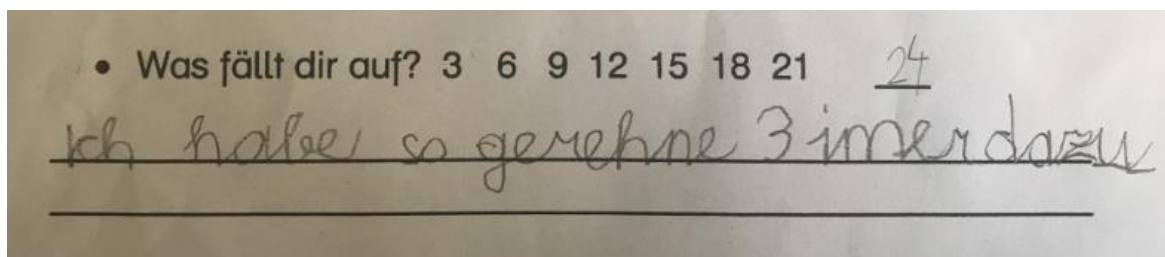 • Was fällt dir auf? 3 6 9 12 15 18 21 24
Ich habe so gerehne 3 imer dazu